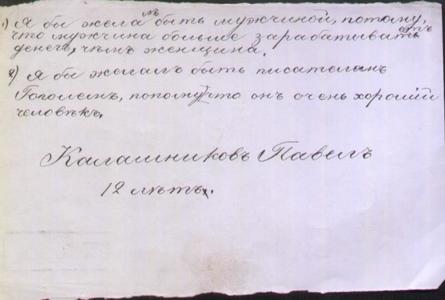 1) Я бы желалъ быть мужчиной, потому,
что мужчина больше зарабатываетъ
денегъ, чѣмъ женщина.
2) Я бы желалъ быть писателемъ
Гоголемъ, потому что онъ очень хорошій
человѣкъ.
Калашниковъ Павелъ
12 лѣтъ.